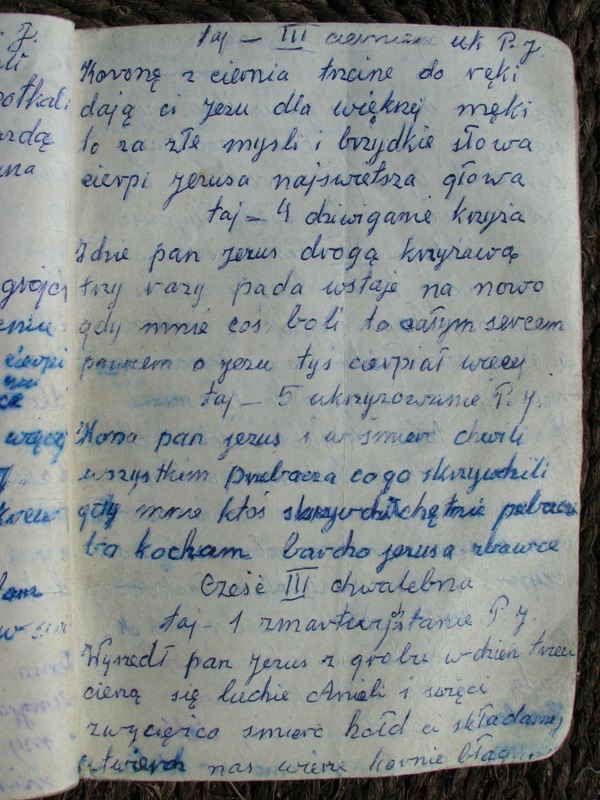 taj - III ukr P. J.
Koronę z ciernia trzcine do ręki
dają ci Jezu dla większej męki
to za złe mysli i brzydkie słowa
cierpi Jezusa najswiętsza głowa
taj - 4 dzwiganie krzyża
Idzie pan jezus drogą krzyzawą
trzy razy pada wstaje na nowo
gdy mnie coś boli to całym sercem
powiem o jezu tyś cierpiał więcej
taj - 5 ukrzyzowanie P. J.
Kona pan jezus i w smierć chwili
wszystkim przebacza co go skrzywdzili
gdy mnie ktoś skrzywdzi chętnie
ba kocham bardzo jezusa zbawce
Cześć III chwalebna
taj - 1 zmartwychstanie P. J.
Wyszedł pan Jezus z grobu w dzień trzeci
cieszą się ludzie Anieli i swięci
zwycięsco smierci hołd ci składamy
utwierdz nas wierze kornie